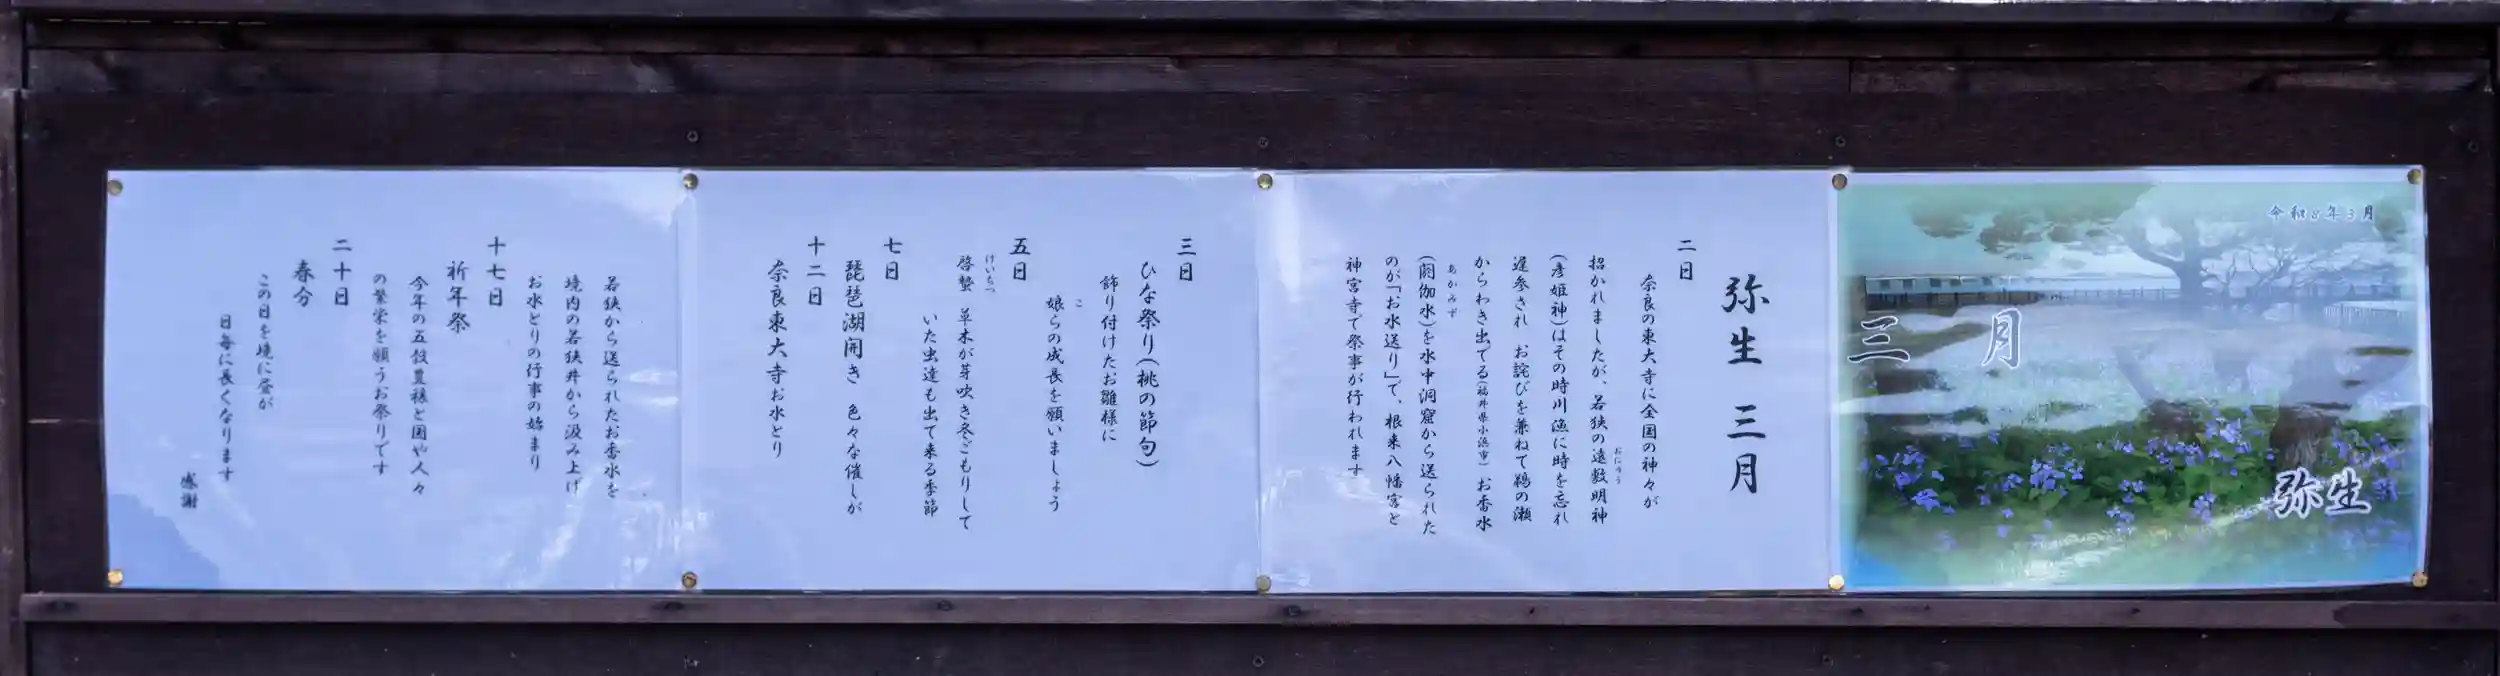 令和8年3月
三月
弥生
弥生 三月
二日
奈良の東大寺に全国の神々が
招かれましたが、若狭の遠敷明神
おにゅう
(彦姫神)はその時川漁に時を忘れ
遅参され お詫びを兼ねて鵜の瀬
からわき出でる(福井県小浜市) お香水
あかみず
(閼伽水)を水中洞窟から送られた
のが「お水送り」で、根来八幡宮と
神宮寺で祭事が行われます
三日
ひな祭り(桃の節句)
飾り付けたお雛様に
こ
娘らの成長を願いましょう
五日
けいちつ
啓蟄 草木が芽吹き冬ごもりして
いた虫達も出て来る季節
七日
琵琶湖開き 色々な催しが
十二日
奈良東大寺お水とり
若狭から送られたお香水を
境内の若狭井から汲み上げ
お水とりの行事の始まり
十七日
祈年祭
今年の五穀豊穣と国や人々
の繁栄を願うお祭りです
二十日
春分
この日を境に昼が
日毎に長くなります
感謝